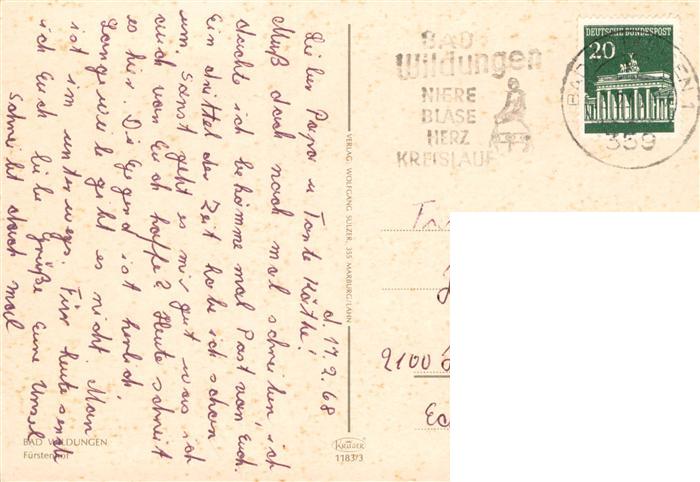 d. 17.9.68
Lieber Papa u Tante Käthe!
Muß doch noch mal schreiben, ich
dachte ich bekomme mal Post von Euch.
Ein drittel der Zeit habe ich schon
um. Sonst geht es mir gut was ich
auch von Euch hoffe? Heute schneit
es hier. Die Gegend ist herlich,
Langeweile gibt es nicht. Man
ist im unterwegs. Für heute sende
ich Euch liebe Grüße Eure Ursel
Schreibt doch mal
BAD WILDUNGEN
Fürstenhof
VERLAG WOLFGANG SULZER, 355 MARBURG/LAHN
KRÜGER
1183/3
BAD
Wildungen
NIERE
BLASE
HERZ
KREISLAUF
DEUTSCHE BUNDESPOST
20
359
2100